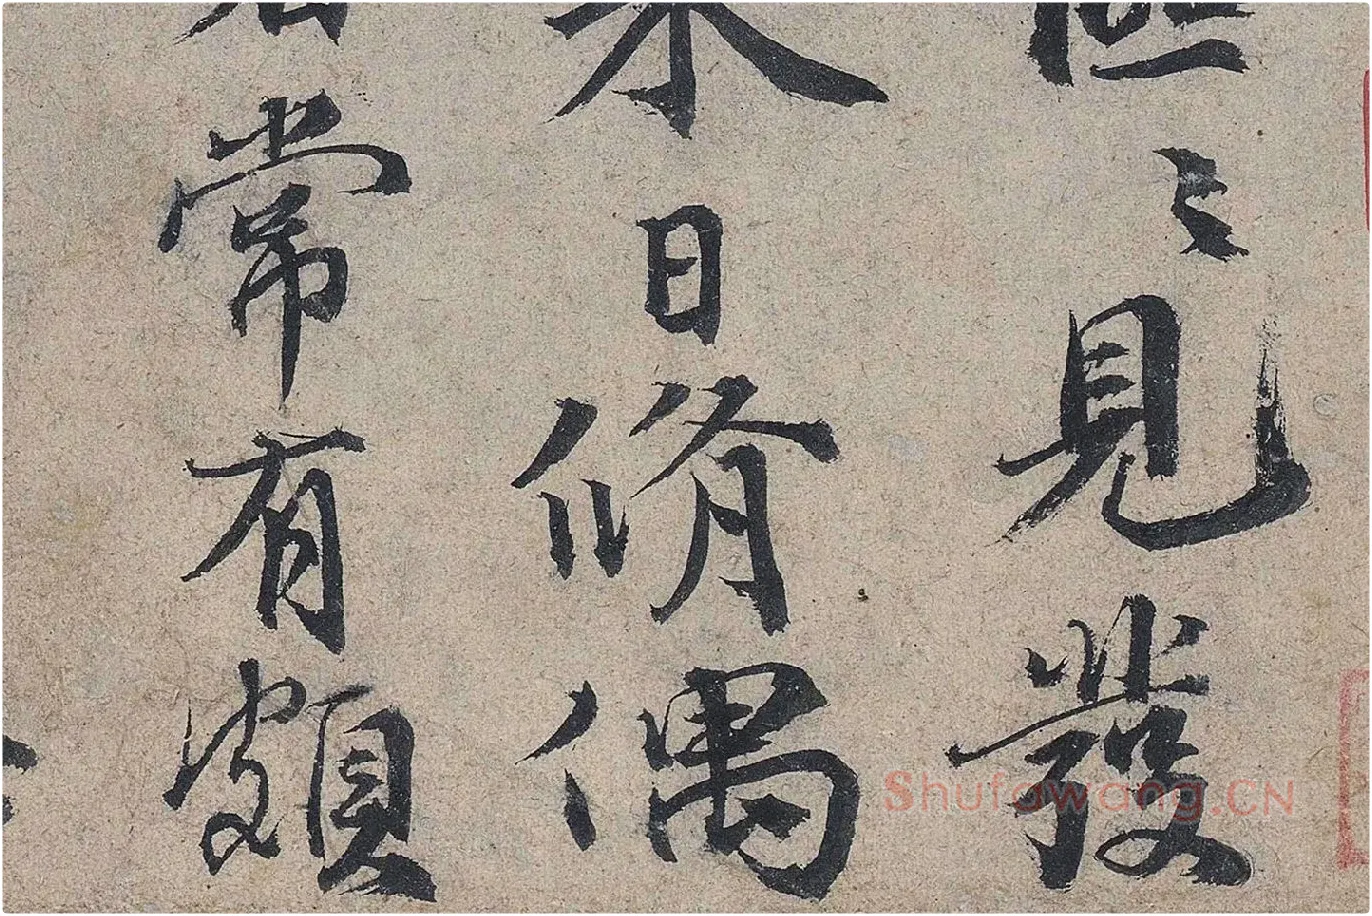 〻見發
來日脩偶
常有頗
Shufawang.CN